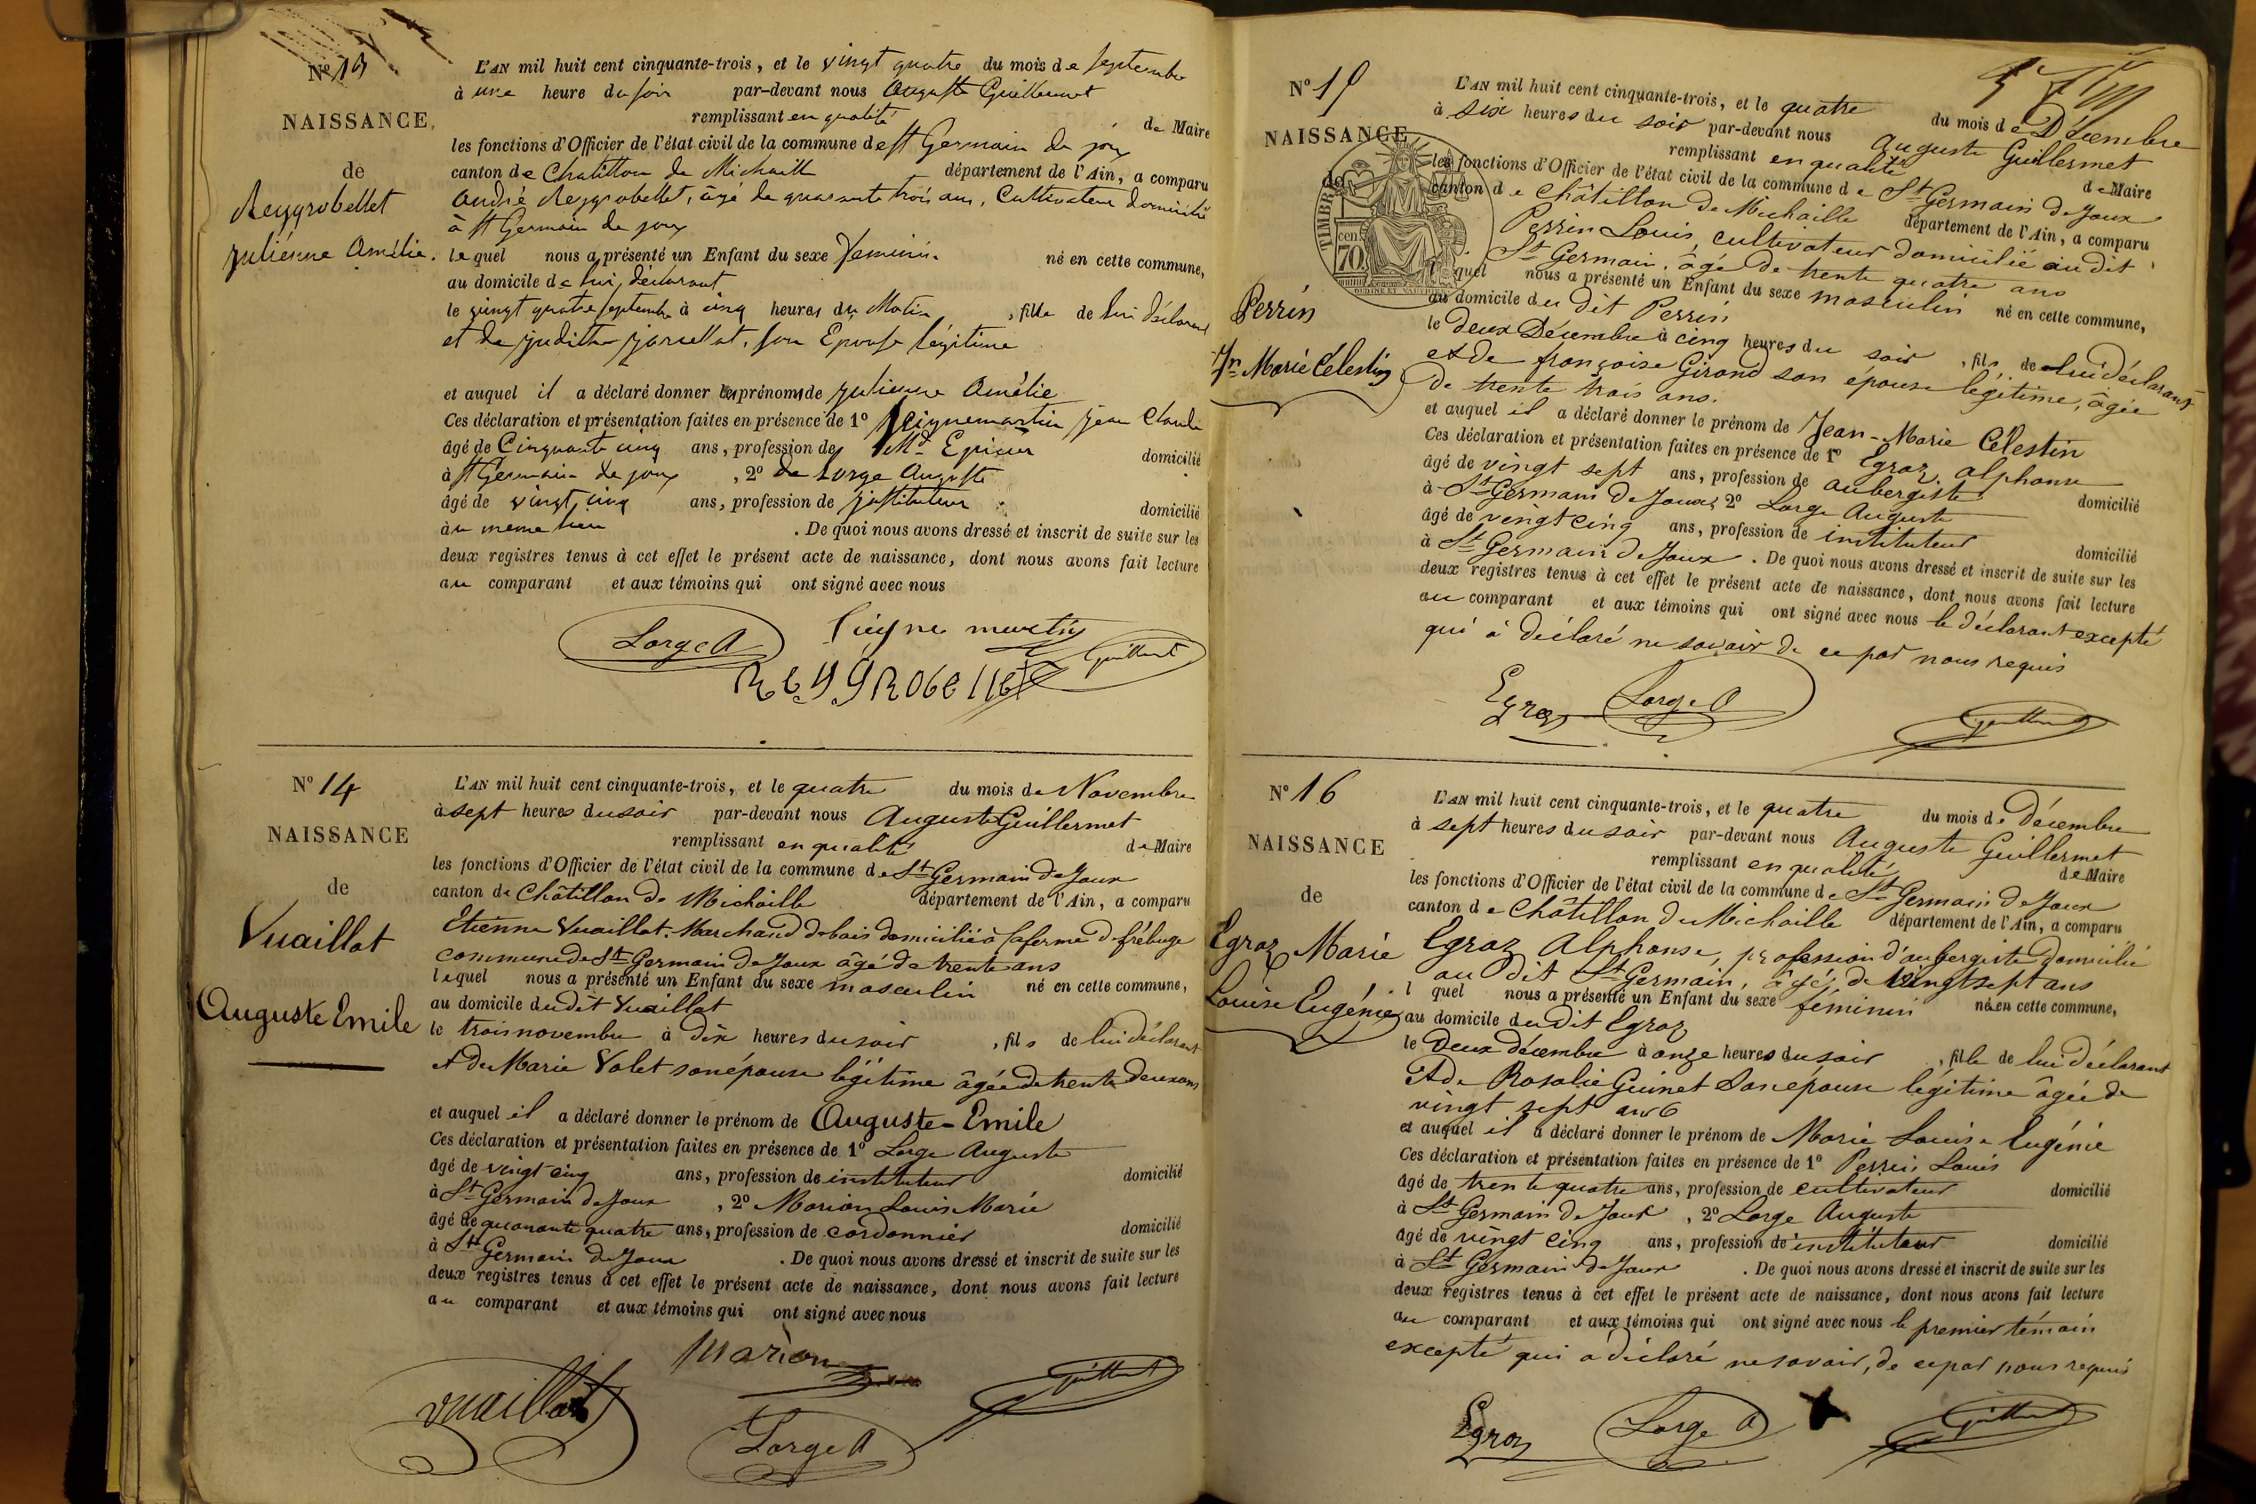 N° 13
NAISSANCE
de
Reygrobellet
Julienne Amélie.
L'AN mil huit cent cinquante-trois, et le vingt quatre du mois de septembre
à une heure du soir par-devant nous Auguste Guillermet
remplissant en qualité de Maire
les fonctions d'Officier de l'état civil de la commune de St Germain de joux
canton de Chatillon de Michaille département de l'Ain, a comparu
André Reygrobellet, âgé de quarante trois ans, Cultivateur domicilié
à St Germain de joux
lequel nous a présenté un Enfant du sexe féminin né en cette commune,
au domicile de lui déclarant
le vingt quatre septembre à cinq heures du Matin, fille de lui déclarant
et de juditha Son Epouse légitime
et auquel il a déclaré donner les prénoms de Julienne Amélie
Ces déclaration et présentation faites en présence de 1° Seignemartin jean Claude
âgé de Cinquante cinq ans, profession de Md Epicier domicilié
à St Germain de joux, 2° de Lorge Auguste
âgé de vingt cinq ans, profession de instituteur domicilié
au meme lieu. De quoi nous avons dressé et inscrit de suite sur les
deux registres tenus à cet effet le présent acte de naissance, dont nous avons fait lecture
au comparant et aux témoins qui ont signé avec nous
Lorge A
ReyGRobellet
Guillermet
N° 14
NAISSANCE
de
Vuaillat
Auguste Emile
L'AN mil huit cent cinquante-trois, et le quatre du mois de Novembre
à sept heures du soir par-devant nous Auguste Guillermet
remplissant en qualité de Maire
les fonctions d'Officier de l'état civil de la commune de St Germain de Joux
canton de Châtillon de Michaille département de l'Ain, a comparu
Etienne Vuaillat. Marchand de bois domicilié à la ferme de frébuge
commune de St Germain de Joux âgé de trente ans
lequel nous a présenté un Enfant du sexe masculin né en cette commune,
au domicile dudit Vuaillat
le trois novembre à dix heures du soir, fils de lui déclarant
et de Marie Volet son épouse légitime âgée de trente deux ans
et auquel il a déclaré donner le prénom de Auguste-Emile
Ces déclaration et présentation faites en présence de 1° Lorge Auguste
âgé de vingt cinq ans, profession de instituteur domicilié
à St Germain de Joux, 2° Marion Louis Marie
âgé de quarante quatre ans, profession de cordonnier domicilié
à St Germain de Joux. De quoi nous avons dressé et inscrit de suite sur les
deux registres tenus à cet effet le présent acte de naissance, dont nous avons fait lecture
au comparant et aux témoins qui ont signé avec nous
Marion
Vuaillat
Lorge A
Guillermet
N° 15
NAISSANCE
de
TIMBRE
cen
70
Perrin
Jn Marie Célestin
L'AN mil huit cent cinquante-trois, et le quatre du mois de Décembre
à six heures du soir par-devant nous Auguste Guillermet
remplissant en qualité de Maire
les fonctions d'Officier de l'état civil de la commune de St Germain de Joux
canton de Châtillon de Michaille département de l'Ain, a comparu
Perrin Louis, cultivateur domicilié au dit
St Germain, âgé de trente quatre ans
lequel nous a présenté un Enfant du sexe masculin né en cette commune,
au domicile du dit Perrin
le deux Décembre à cinq heures du soir, fils de lui déclarant
et de françoise Girond son épouse légitime, âgée
de trente trois ans.
et auquel il a déclaré donner le prénom de Jean-Marie Célestin
Ces déclaration et présentation faites en présence de 1° Egraz alphonse
âgé de vingt sept ans, profession de aubergiste domicilié
à St Germain de Joux, 2° Lorge Auguste
âgé de vingt cinq ans, profession de instituteur domicilié
à St Germain de Joux. De quoi nous avons dressé et inscrit de suite sur les
deux registres tenus à cet effet le présent acte de naissance, dont nous avons fait lecture
au comparant et aux témoins qui ont signé avec nous le déclarant excepté
qui a déclaré ne savoir de ce par nous requis
Egraz
Lorge A
Guillermet
N° 16
NAISSANCE
de
Egraz Marie
Louise Eugénie
L'AN mil huit cent cinquante-trois, et le quatre du mois de Décembre
à sept heures du soir par-devant nous Auguste Guillermet
remplissant en qualité de Maire
les fonctions d'Officier de l'état civil de la commune de St Germain de Joux
canton de Châtillon de Michaille département de l'Ain, a comparu
Egraz Alphonse, profession d'aubergiste domicilié
au dit St Germain, âgé de vingt sept ans
l quel nous a présenté un Enfant du sexe féminin né en cette commune,
au domicile du dit Egraz
le Deux décembre à onze heures du soir, fille de lui déclarant
Et de Rosalie Guinet Son épouse légitime âgée de
vingt sept ans
et auquel il a déclaré donner le prénom de Marie Louise Eugénie
Ces déclaration et présentation faites en présence de 1° Perrin Louis
âgé de trente quatre ans, profession de cultivateur domicilié
à St Germain de Joux, 2° Lorge Auguste
âgé de vingt cinq ans, profession de instituteur domicilié
à St Germain de Joux. De quoi nous avons dressé et inscrit de suite sur les
deux registres tenus à cet effet le présent acte de naissance, dont nous avons fait lecture
au comparant et aux témoins qui ont signé avec nous le premier témoin
excepté qui a déclaré ne savoir, de ce par nous requis
Egraz
Lorge A
Guillermet